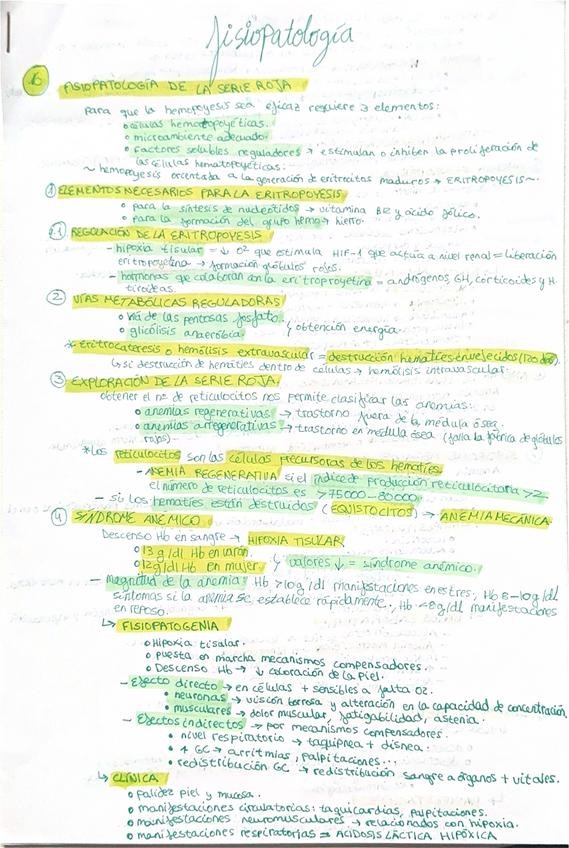 fisiopatología
6 FISIOPATOLOGÍA DE LA SERIE ROJA
Para que la hemopoyesis sea eficaz requiere 3 elementos:
• células hematopoyéticas.
• microambiente adecuado
• Factores solubles reguladores → estimulan o inhiben la proliferación de
las células hematopoyéticas.
~ hemopoyesis orientada a la generación de eritrocitos maduros → ERITROPOYESIS ~.
① ELEMENTOS NECESARIOS PARA LA ERITROPOYESIS
• para la síntesis de nucleótidos → vitamina B12 y ácido fólico.
• para la formación del grupo hemo → hierro.
1.1 REGULACIÓN DE LA ERITROPOYESIS
- hipoxia tisular = ↓ O2 que estimula HIF-1 que actúa a nivel renal = liberación
eritropoyetina → formación glóbulos rojos.
- hormonas que colaboran con la eritroproyetina = andrógenos, GH, corticoides y H.
tiroideas.
② VÍAS METABÓLICAS REGULADORAS
• vía de las pentosas fosfato.
• glicólisis anaerobia. } obtención energía.
* Eritrocateresis o hemólisis extravascular = destrucción hematíes envejecidos (120 días).
↳ si destrucción de hematíes dentro de células → hemólisis intravascular.
③ EXPLORACIÓN DE LA SERIE ROJA.
obtener el nº de reticulocitos nos permite clasificar las anemias:
• anemias regenerativas → trastorno fuera de la médula ósea.
• anemias arregenerativas → trastorno en médula ósea (falla la fábrica de glóbulos
rojos).
* Los reticulocitos son las células precursoras de los hematíes.
- ANEMIA REGENERATIVA si el índice de producción reticulocitaria > 2
el número de reticulocitos es > 75000 - 80000.
- si los hematíes están destruidos (EQUISTOCITOS) → ANEMIA MECÁNICA.
④ SÍNDROME ANÉMICO.
Descenso Hb en sangre → HIPOXIA TISULAR.
• 13 g/dl Hb en varón.
• 12 g/dl Hb en mujer. } valores ↓ = síndrome anémico.
- magnitud de la anemia: Hb > 10 g/dl manifestaciones en estrés, Hb 8-10 g/dL
síntomas si la anemia se establece rápidamente, Hb < 8 g/dL manifestaciones
en reposo.
↳ FISIOPATOGENIA
• Hipoxia tisular.
• puesta en marcha mecanismos compensadores.
• Descenso Hb → ↓ coloración de la piel.
- Efecto directo → en células + sensibles a falta O2.
• neuronas → visión borrosa y alteración en la capacidad de concentración.
• musculares → dolor muscular, fatigabilidad, astenia.
- Efectos indirectos → por mecanismos compensadores.
• nivel respiratorio → taquipnea + disnea.
• ↑ GC → arritmias, palpitaciones...
• redistribución GC → redistribución sangre a órganos + vitales.
↳ CLÍNICA
• palidez piel y mucosa.
• manifestaciones circulatorias: taquicardias, palpitaciones.
• manifestaciones neuromusculares → relacionados con hipoxia.
• manifestaciones respiratorias = ACIDOSIS LÁCTICA HIPÓXICA